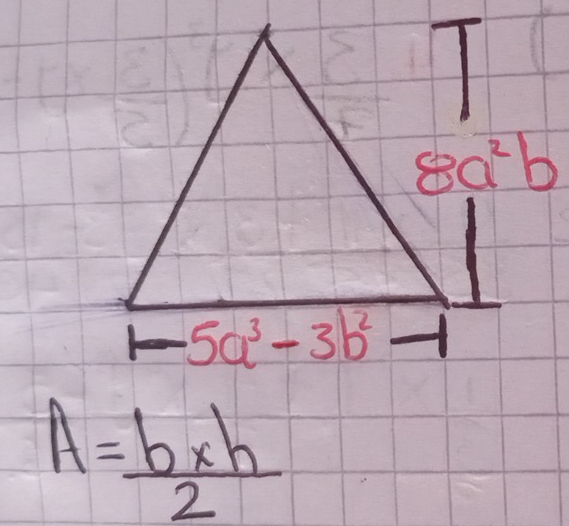 8a²b
5a³ - 3b²
A = b x h
2